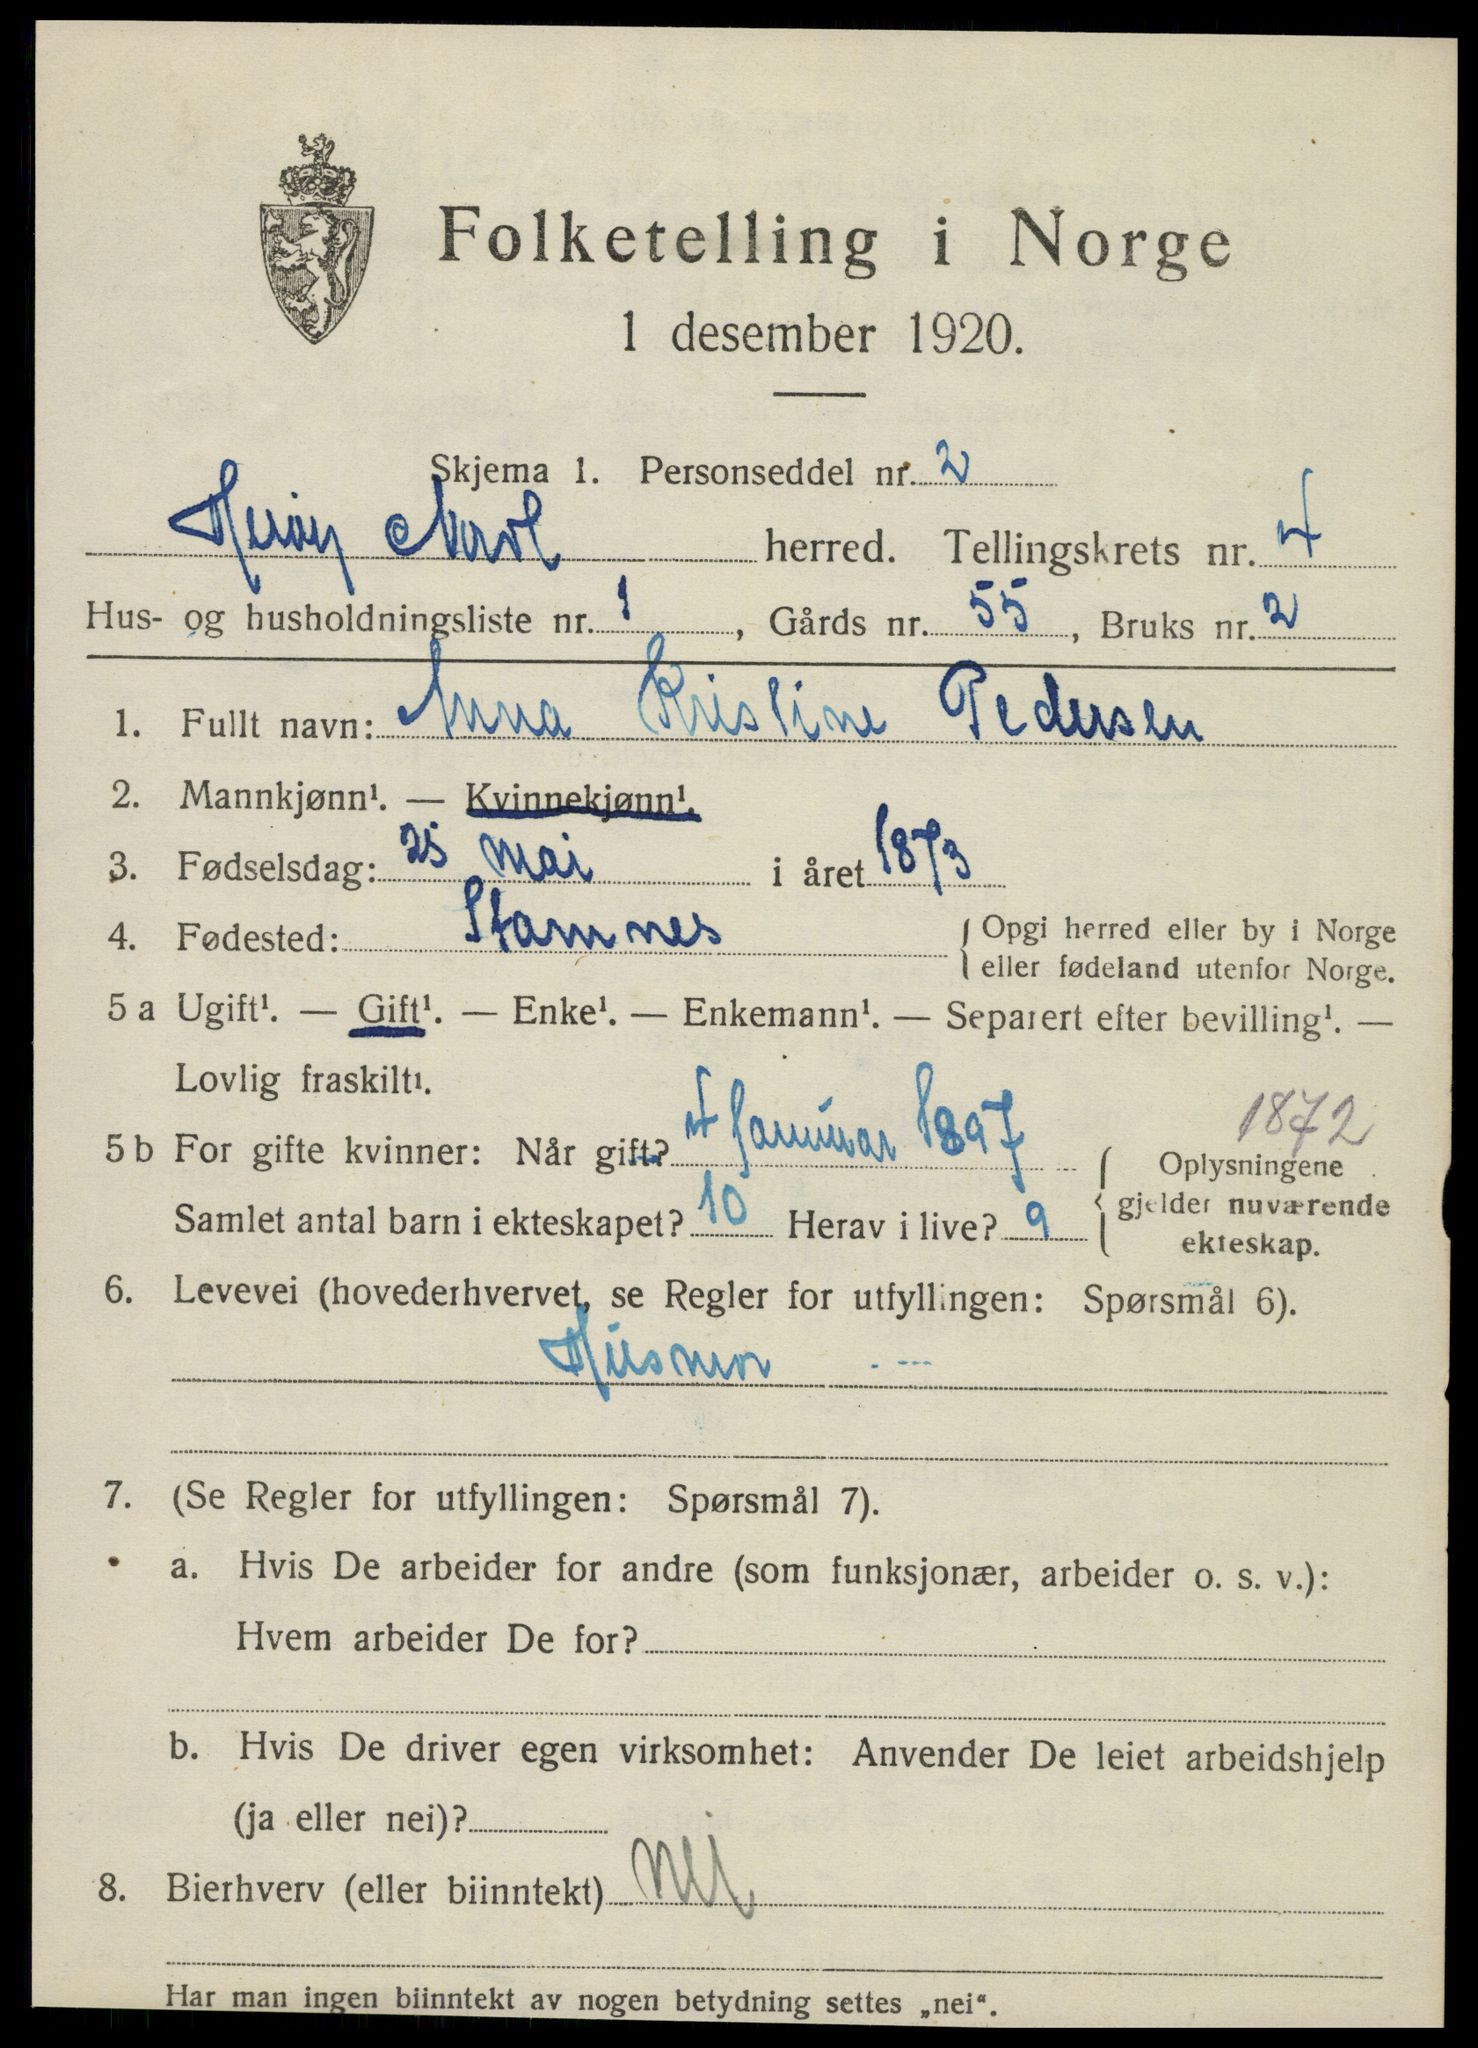 Folketelling i Norge
1 desember 1920.
Skjema 1. Personseddel nr. 2
Herøy Nordl herred. Tellingskrets nr. 4
Hus- og husholdningsliste nr. 1, Gårds nr. 55, Bruks nr. 2
1. Fullt navn: Anna Kristine Pedersen
2. Mannkjønn¹. — Kvinnekjønn¹.
3. Fødselsdag: 25 mai i året 1873
4. Fødested: Stamnes { Opgi herred eller by i Norge
eller fødeland utenfor Norge.
5 a Ugift¹. — Gift¹. — Enke¹. — Enkemann¹. — Separert efter bevilling¹. —
Lovlig fraskilt¹.
1872
5 b For gifte kvinner: Når gift? 4 Januar 1897 { Oplysningene
Samlet antal barn i ekteskapet? 10 Herav i live? 9 gjelder nuværende
ekteskap.
6. Levevei (hovederhvervet, se Regler for utfyllingen: Spørsmål 6).
Husmor
7. (Se Regler for utfyllingen: Spørsmål 7).
a. Hvis De arbeider for andre (som funksjonær, arbeider o. s. v.):
Hvem arbeider De for?
b. Hvis De driver egen virksomhet: Anvender De leiet arbeidshjelp
(ja eller nei)?
8. Bierhverv (eller biinntekt) nei
Har man ingen biinntekt av nogen betydning settes „nei“.